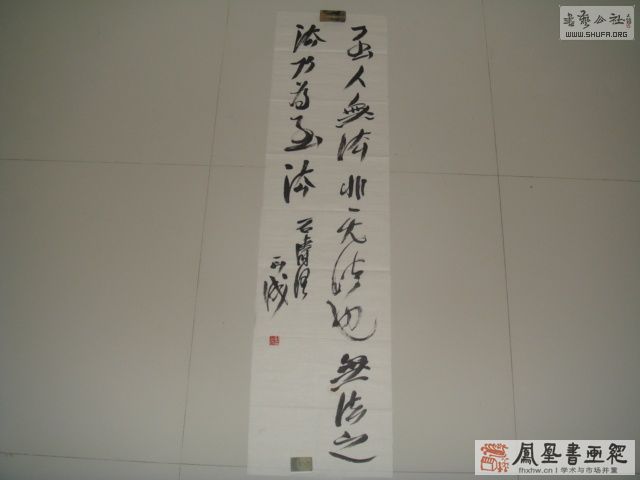 至人無法非无法也無法之
法乃為至法
石濤語
書藝公社
WWW.SHUFA.ORG
鳳凰書畫網
fhxhw.cn | 学术与市场并重